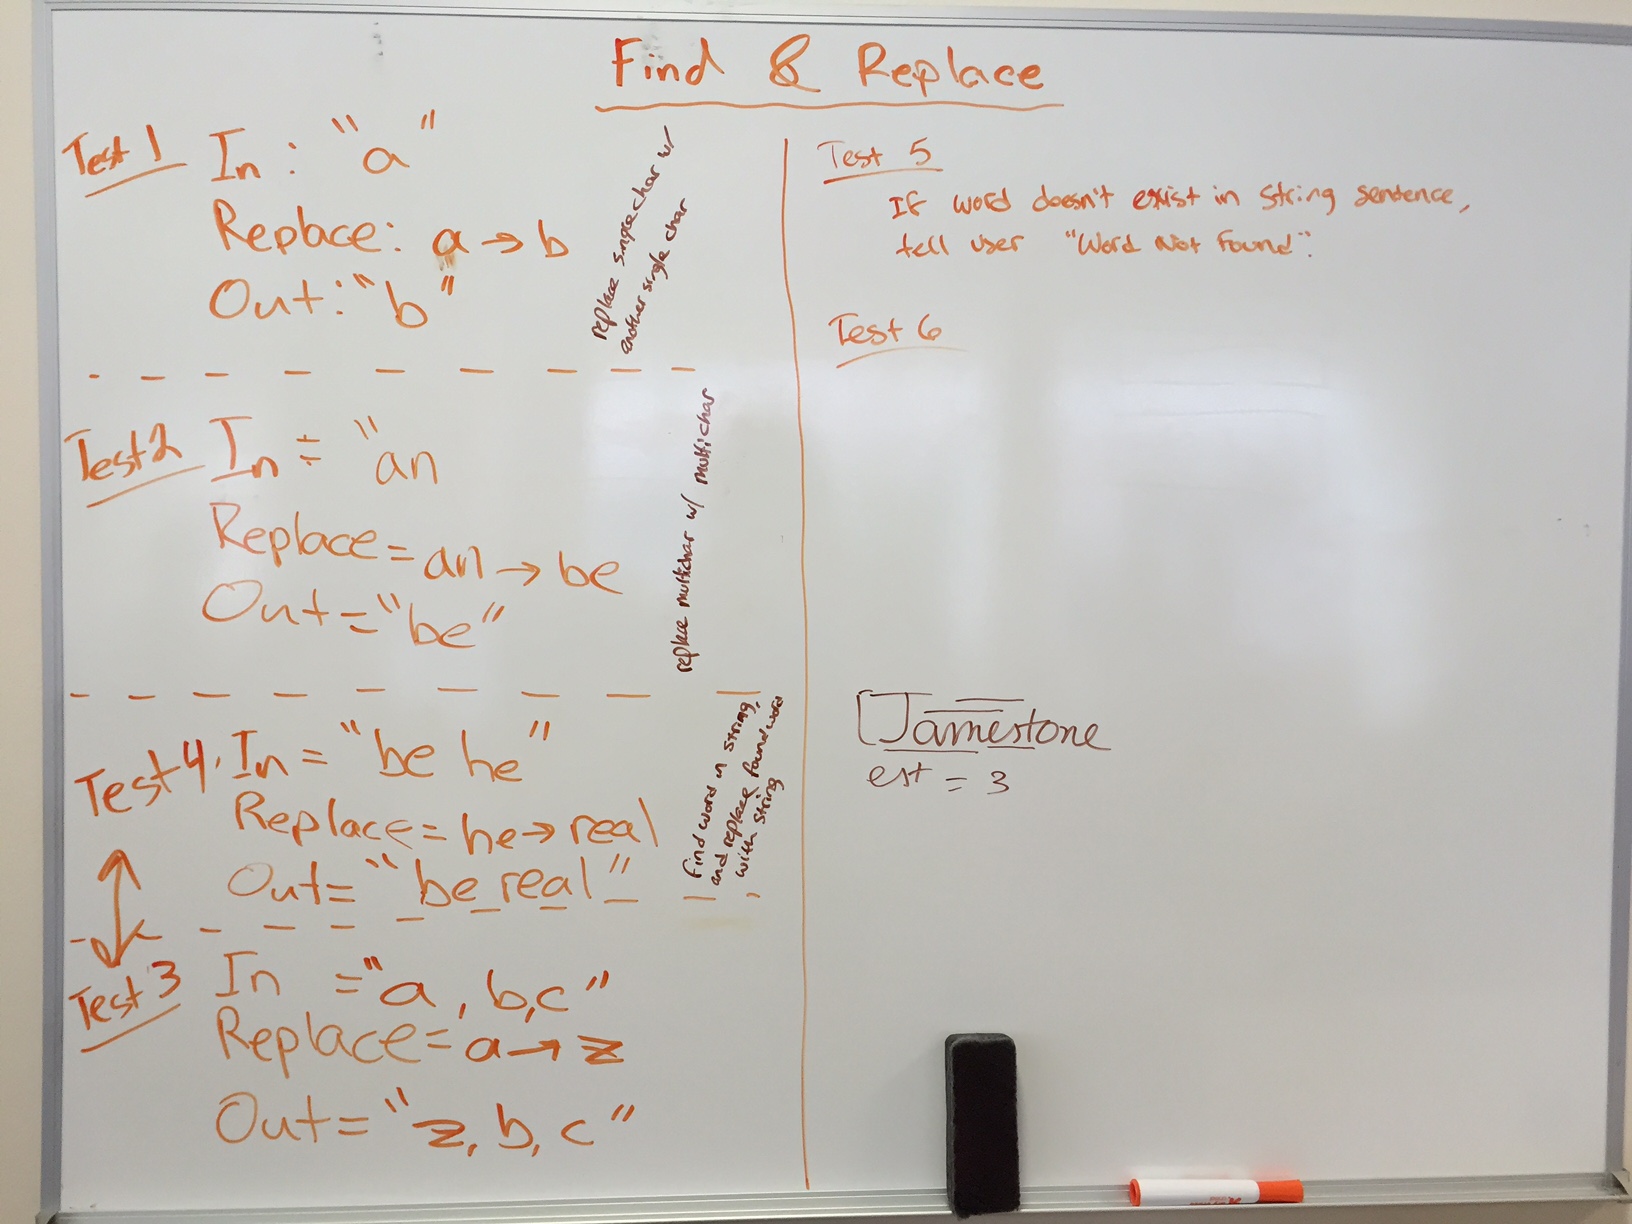 Find & Replace
Test 1 In: "a"
Replace: a → b
Out: "b"
replace single char w/
another single char
Test 2 In = "an
Replace = an → be
Out = "be"
replace multichar w/ multichar
Test 4. In = "be he"
Replace = he → real
Out = "be real"
Find word in string,
and replace found word
with string
Test 3 In = "a, b,c"
Replace = a → z
Out = "z, b, c"
Test 5
If word doesn't exist in string sentence,
tell user "Word Not Found".
Test 6
[Jamestone
est = 3